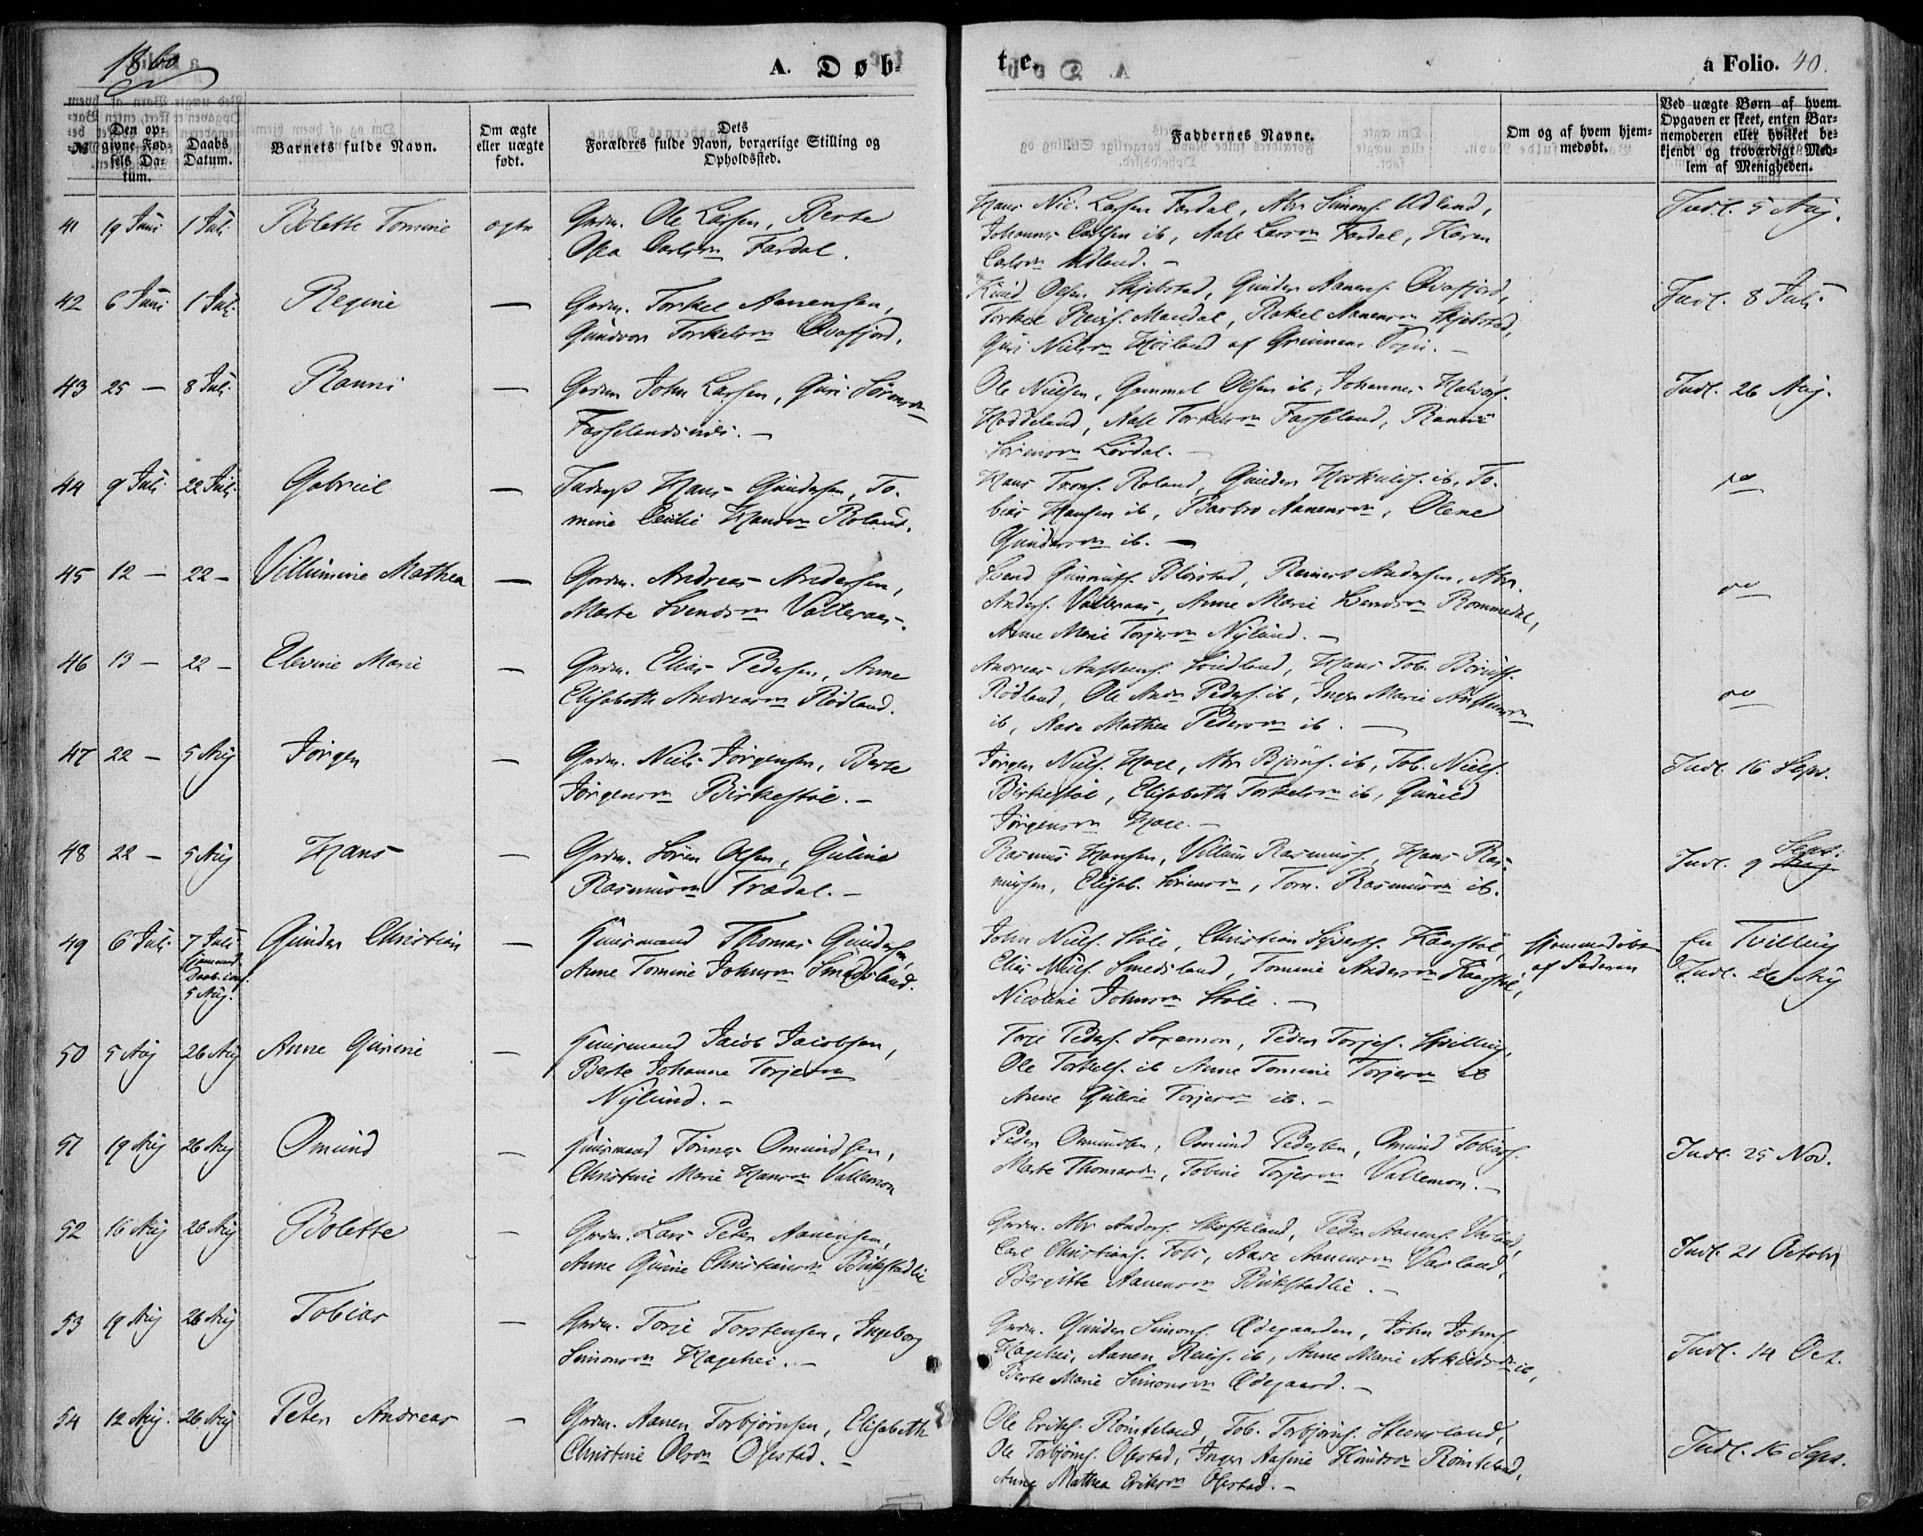 1860
A. Døb-
te.
a Folio. 40.
№
Den op-
givne Fød-
sels Da-
tum.
Daabs
Datum.
Barnets fulde Navn.
Om ægte
eller uægte
født.
Dets
Forældres fulde Navn, borgerlige Stilling og
Opholdssted.
Faddernes Navne.
Om og af hvem hjem-
medøbt.
Ved uægte Børn af hvem
Opgaven er skeet, enten Bar-
nemoderen eller hvilket be-
kjendt og troværdigt Med-
lem af Menigheden.
41 19 Juni 1 Juli Bolette Tomine ægte Grdm. Ole Larsen, Berte
Carlsn Fardal.
Hans Nic. Larsen Fardal, Abr Simons. Udland,
Johannes Carlsen ib, Aase Larsn Fardal, Karen
Carlsn Udland. —
Indl. 5 Aug.
42 6 Juni 1 Juli Regine — Grdm. Torkel Aanensen,
Gundvor Torkelsn Qvafjord.
Knud Olsen Skjelstad, Gunder Aanens. Qvafjord,
Torkel Reiers. Mandal, Rakel Aanensn Skjelstad,
Guri Nielsn Høiland af
Indl. 8 Juli
43 25 — 8 Juli Ranni — Grdm John Larsen, Guri Sørensn
Fasselandsnes. —
Ole Nielsen, Gammel Olsen ib, Johannes Halvors.
Haddeland, Aase Torkelsn Fasseland, Rannie
Sørensn Lordal. —
Indl. 26 Aug.
44 9 Juli 22 Juli Gabriel — Inders Hans Gundersen, To-
mine Cecilie Hansn Roland.
Hans Trons. Roland, Gunder ib, To-
bias Hansen ib, Barbro Aanensn, Olene
Gundersn ib. —
do
45 12 — 22 — Villumine Mathea — Grdm. Andreas Andersen,
Marte Svendsn Valteraas.
Svend Gunnufs. Reinert Andersen, Abr.
Anders. Valteraas, Anne Marie Svendsn Rommedal,
Anne Marie Torjersn Nylund. —
do
46 13 — 22 — Elevine Marie — Grdm. Elias Pedersen, Anne
Elisabeth Andreasn Rødland.
Andreas Sindland, Hans Tob.
Rødland, Ole Andr Peders. ib, Inger Marie
ib, Aase Mathea Pedersn ib. —
do
47 22 — 5 Aug Jørgen — Grdm. Niels Jørgensen, Berte
Jørgensn Birkestøl. —
Jørgen Niels. Abr Bjørns. ib, Tob. Niels.
Birkestøl, Elisabeth Torkelsn ib, Gunild
Jørgensn
Indl. 16 Sepr.
48 22 — 5 Aug Hans — Grdm. Søren Olsen, Guline
Rasmusn Trædal. —
Rasmus Hansen, Villum Rasmus., Hans Ras-
musen, Elisab. Sørensn, Torn. Rasmusn ib.
Indl. 9 Sept.
49 6 Juli 7 Juli
5 Aug.
Gunder Christian — Huusmand Thomas Gunders.,
Anne Tomine Johnsn Smedsland.
John Niels. Støle, Christian Syverts. Kaarstøl,
Elias Niels. Smedsland, Tomine Andersn Kaarstøl,
Nicoline Johnsn Støle. —
hjemmedøbt
af Faderen
En Tvilling
Indl. 26 Aug
50 5 Aug 26 Aug Anne Gurine — Huusmand Jacob Jacobsen,
Berte Johanne Torjersn
Nylund. —
Torje Peders. Peder Torjes.
Ole Torkels. ib Anne Tomine Torjersn ib
Anne Guline Torjersn ib. —
51 19 Aug 26 Aug Omund — Huusmand Tønnes Omundsen,
Christine Marie Hansn Vallemon
Peder Omundsen, Omund Pedersen, Omund Tobias.
Marte Thomasn, Tobine Torjersn Vallemon. —
Indl. 25 Nov.
52 16 Aug 26 Aug Bolette — Grdm. Lars Peter Aanensen,
Anne Gurine Christiansn Birkstadlie
Grdm. Abr Anders. Peder Aanens. Varland,
Carl Christians. Foss, Aase Aanensn Varland,
Bergitte Aanensn Birkstadlie. —
Indl. 21 October
53 19 Aug 26 Aug Tobias — Grdm. Torje Torstensen, Ingeborg
Simonsn Hagehei. —
Grdm. Gunder Simons. Ødegaarden, John Johns.
Hagehei, Aanen Reiers. ib, Anne Marie ib,
Berte Marie Simonsn Ødegaard. —
Indl. 14 Oct.
54 12 Aug. 26 Aug Peter Andreas — Grdm. Aanen Torbjørnsen, Elisabeth
Christine Olsn Ofestad. —
Ole Eriks. Romteland, Tob. Torbjørns. Steensland,
Ole Torbjørns. Ofestad, Inger Aasine Knudsn Romteland,
Anne Mathea Eriksn Ofestad. —
Indl. 16 Sept.